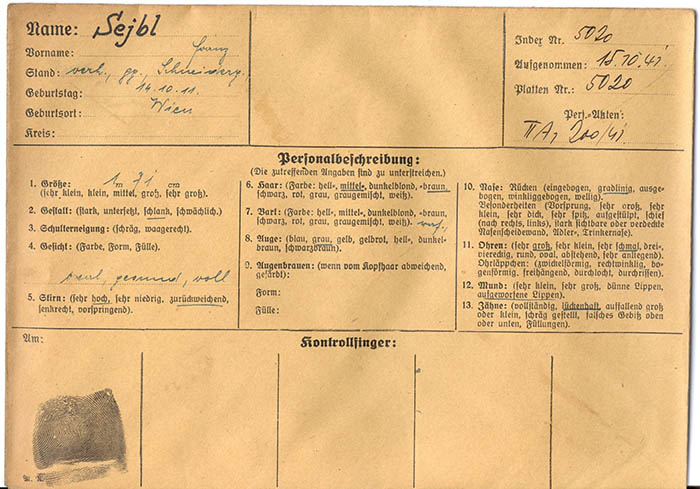 Name: Sejbl
Vorname: Franz
Stand: verh., gg., Schneiderg.
Geburtstag: 14.10.11.
Geburtsort: Wien
Kreis:
Index Nr. 5020
Aufgenommen: 15.10.41.
Platten Nr.: 5020
Pers.-Akten:
II A, 200/41
Personalbeschreibung:
(Die zutreffenden Angaben sind zu unterstreichen.)
1. Größe: 1 m 71 cm
(sehr klein, klein, mittel, groß, sehr groß).
2. Gestalt: (stark, untersetzt, schlank, schwächlich).
3. Schulterneigung: (schräg, waagerecht).
4. Gesicht: (Farbe, Form, Fülle).
oval, gesund, voll
5. Stirn: (sehr hoch, sehr niedrig, zurückweichend,
senkrecht, vorspringend).
6. Haar: (Farbe: hell-, mittel-, dunkelblond, -braun,
schwarz, rot, grau, graugemischt, weiß).
7. Bart: (Farbe: hell-, mittel-, dunkelblond, -braun,
schwarz, rot, grau, graugemischt, weiß).
8. Auge: (blau, grau, gelb, gelbrot, hell-, dunkel-
braun, schwarzbraun).
9. Augenbrauen: (wenn vom Kopfhaar abweichend,
gefärbt):
Form:
Fülle:
10. Nase: Rücken (eingebogen, gradlinig, ausge-
bogen, winkliggebogen, wellig).
Besonderheiten (Vorsprung, sehr groß, sehr
klein, sehr dick, sehr spitz, aufgestülpt, schief
(nach rechts, links), stark sichtbare oder verdeckte
Nasenscheidewand, Adler-, Trinkernase).
11. Ohren: (sehr groß, sehr klein, sehr schmal, drei-,
viereckig, rund, oval, abstehend, sehr anliegend).
Ohrläppchen: (zwickelförmig, rechtwinklig, bo-
genförmig, freihängend, durchlocht, durchrissen).
12. Mund: (sehr klein, sehr groß, dünne Lippen,
aufgeworfene Lippen).
13. Zähne: (vollständig, lückenhaft, auffallend groß
oder klein, schräg gestellt, falsches Gebiß oben
oder unten, Füllungen).
Am:
Kontrollfinger: